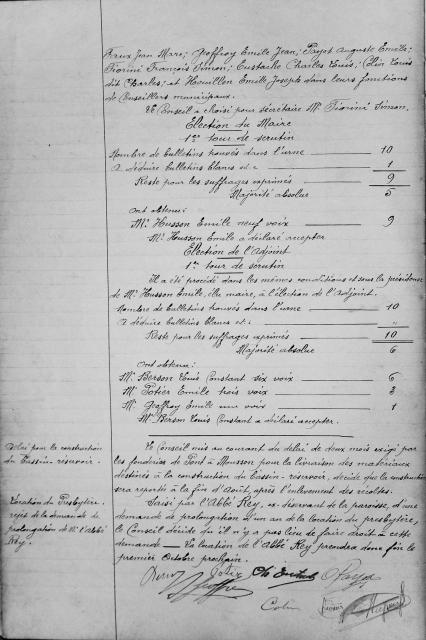 Jean Marc; Geoffroy Emile Jean; Payot Auguste Emile;
Fiorini François Simon; Eustache Charles Louis; Colin Louis
dit Charles; et Houillon Emile Joseph dans leurs fonctions
de Conseillers municipaux.
Le Conseil a choisi pour secrétaire Mr Fiorini Simon.
Election du Maire
1er tour de scrutin
Nombre de bulletins trouvés dans l'urne 10
A déduire bulletins blancs et c 1
Reste pour les suffrages exprimés 9
Majorité absolue 5
Ont obtenu:
Mr Husson Emile neuf voix 9
Mr Husson Emile a déclaré accepter
Election de l'Adjoint
1er tour de scrutin
Il a été procédé dans les mêmes conditions et sous la présidence
de Mr Husson Emile, élu maire, à l'élection de l'Adjoint.
Nombre de bulletins trouvés dans l'urne 10
A déduire bulletins blancs et c. "
Reste pour les suffrages exprimés 10
Majorité absolue 6
Ont obtenu:
Mr Berson Louis Constant six voix 6
Mr Potier Emile trois voix 3
Mr Geoffroy Emile une voix 1
Mr Berson Louis Constant a déclaré accepter.
Délai pour la construction
du Bassin-réservoir.
Le Conseil mis au courant du délai de deux mois exigé par
les fonderies de Pont à Mousson pour la livraison des matériaux
destinés à la construction du Bassin-reservoir, décide que la construction
sera reportée à la fin d'Août, après l'enlèvement des récoltes.
Location du Presbytère.
rejet de la demande de
prolongation de Mr l'Abbé
Rey.
Saisi par l'Abbé Rey, ex desservant de la paroisse, d'une
demande de prolongation d'un an de la location du presbytère,
le Conseil décide qu'il n'y a pas lieu de faire droit à cette
demande — La location de l'Abbé Rey prendra donc fin le
premier Octobre prochain.
Potier
Colin
Fiorini